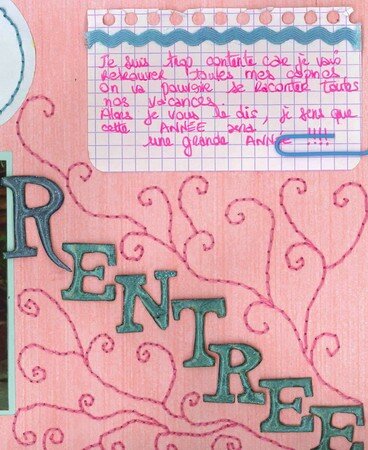 Je suis trop contente car je vais
retrouver toutes mes copines
On va pouvoir se raconter toutes
nos vacances.
Alors je vous le dis, je sens que
cette ANNÉE sera
une grande ANNÉE !!!!
RENTREE